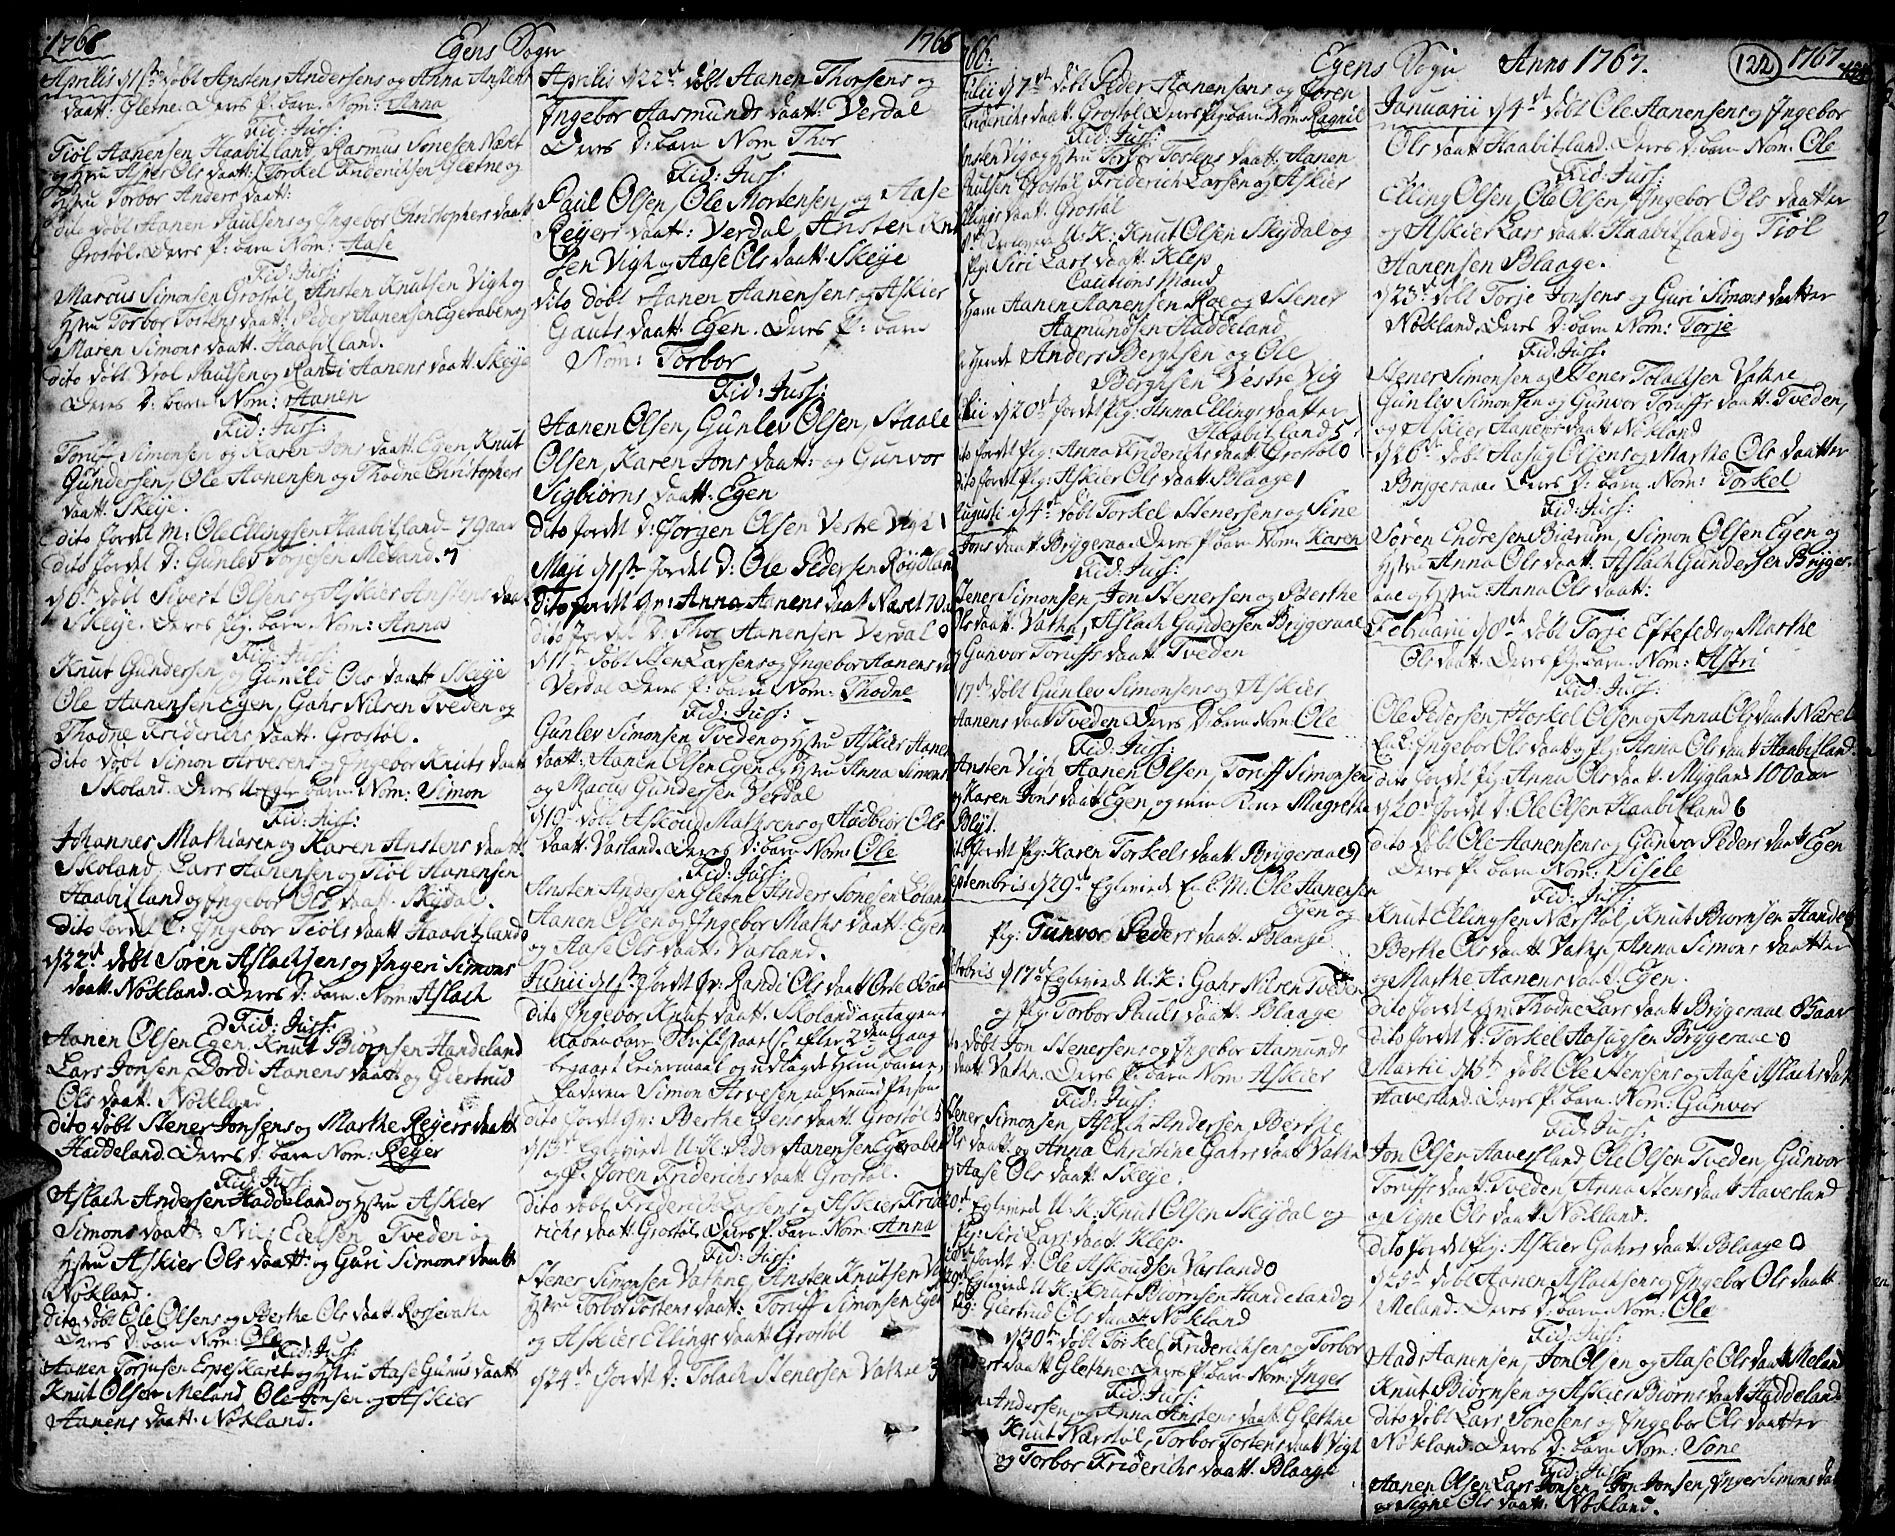 1766 Egens Sogn 1766
Aprilis d 1ste døbt Anstens Andersens og Anna Anstens
daatt: Gletne. Deres P: barn Nom: Anna
Fid: Juss:
Tiøl Aanensen Haabitland, Rasmus Sonesen Næset
og Hstru Aase Ols daatt: Torkel Friderichsen Gletne og
Hstru Torbor Anders daatt:
dito døbt Aanen Paulsens og Ingebor Christophers daatt
Grostøl. Deres P: barn Nom: Aase
Fid: Juss:
Marcus Simonsen Grostøl, Ansten Knutsen Vigh og
Hstru Torbor Tostens daatt: Peder Aanensen Egeraben og
Maren Simons daatt. Haabitland.
dito døbt Vrol Paulsen og Randi Aanens daatt Skeÿe
Deres D: barn Nom: Aanen
Fid: Juss:
Toruf Simonsen og Karen Jons daatt Egen, Knut
Gundersen, Ole Aanensen og Thodne Christophers
daatt. Skeÿe.
dito Jordet M: Ole Ellingsen Haabitland 79 aar
dito Jordet D: Gunlev Torjesen Meland. 7
d 6te døbt Sivert Olsens og Askier Anstens daatt
Skeÿe. Deres pig: barn. Nom: Anna
Fid: Juss:
Knut Gundersen og Gunild Ols daatt Skeÿe
Ole Aanensen Egen, Gahr Nilsen Tveden og
Thodne Friderichs daatt. Grostøl.
dito døbt Simon Arvesens og Ingebor Knuts daatt
Skoland. Deres Uægte barn Nom: Simon
Fid: Juss:
Johannes Mathiasen og Karen Anstens daatt.
Skoland, Lars Aanensen og Tiøl Aanensen
Haabitland og Ingebor Ols daatt. Skÿdal.
dito Jordet P: Ingebor Tiøls daatt Haabitland 0
d 22de døbt Søren Aslachsens og Ingeri Simons
daatt. Nokland. Deres D: barn. Nom: Aslach
Fid: Juss:
Aanen Olsen Egen, Knut Biørnsen Handeland
Lars Jonsen, Dordi Aanens daatt og Giertrud
Ols daatt. Nokland
dito døbt Stener Jonsens og Marthe Reÿers daatt
Haddeland. Deres D: barn Nom: Reÿer
Fid: Juss:
Aslach Andersen Haddeland og Hstru Askier
Simons daatt: Tveden og
Hstru Askier Ols daatt: og Guri Simons daatt
Nokland.
dito døbt Ole Olsens og Berthe Ols daatt Rossevatn
Deres D: barn Nom: Ole
Fid: Juss:
Aanen Torjusen Erpeskaret og Hstru Aase Gunus daatt
Knut Olsen Meland Ole Jonsen og Askier
Aanens daatt. Nokland.
Aprilis d 22de døbt Aanen Thorsens og
Ingebor Aasmunds daatt: Verdal
Deres D: barn Nom Thor
Fid: Juss:
Paul Olsen, Ole Mortensen, og Aase
Reÿers daatt: Verdal, Ansten Knut
sen Vigh og Aase Ols daatt. Skeÿe
dito døbt Aanen Aanensens og Askier
Gauts daatt: Egen. Deres P: barn
Nom: Torbor
Fid: Juss:
Aanen Olsen, Gunlev Olsen, Staale
Olsen, Karen Jons daatt: og Gunvor
Sigbiørns daatt. Egen
dito Jordet D: Jorgen Olsen Vestre Vigh 1
Maji d 1ste Jordet D: Ole Pedersen Røÿdland
dito Jordet Qv: Anna Aanens daat Næset 70 aar
dito Jordet D: Thor Aanensen Verdal 0
d 11te døbt Sten Larsens og Ingebor Aanens daatt
Verdal Deres P: barn Nom: Thodne
Fid: Juss:
Gunlev Simonsen Tveden og Hstru Askier Aanens
daatt: Aanen Olsen Egen og Hstru Anna Simons
og Marcus Gundersen Verdal
d 19de døbt Askoud Mathsens og Hadbior Ols
daatt. Varland. Deres D: barn Nom: Ole
Fid: Juss:
Ansten Andersen Gletne Anders Sonesen Loland
Aanen Olsen og Ingebor Maths daatt: Egen
og Aase Ols daatt: Varland.
Junii d 1ste Jordet Qv: Rande Ols daatt Orte 83 aar
dito Ingebor Knuts daatt. Skoland antagen
aabenbare Skriftstaaelse efter 2den gang
begaaet Leiermaal og udlagde hun barne
faderen Simon Arvesen en Fremed Person
dito Jordet Qv: Berthe Jens daatt. Grostøl 5
d 13de Egteviet U: K: Peder Aanensen Egeraben
og P: Joren Friderichs daatt Grostøl.
dito døbt Friderich Larsens og Askier Fride
richs daatt Grostøl. Deres P: barn Nom: Anna
Fid: Juss:
Stener Simonsen Vathne, Ansten Knutsen Vigh
Hstru Torbor Tostens daatt: Toruff Simonsen Egen
og Askier Ellings daatt Grostøl
d 24de Jordet D: Tolach Stenersen Vathne 3
66. Egens Sogn Anno 1767. 122 1767
Julii d 7de døbt Peder Aanensens og Joren
Friderichs daatt. Grostøl Deres Pig: barn Nom Ragnil
Fid: Juss:
Ansten Vig og Hstru Torbor Tostens daatt: Aanen
Paulsen Grostøl, Friderich Larsen og Askier
Ellings daatt. Grostøl
Trolovet U: K: Knut Olsen Skÿdal og
Pig: Siri Lars daatt. Klep
Cautions Mænd
For ham Aanen Aanensen Roe og Stener
Aamundsen Haddeland
For hende Anders Bergtsen og Ole
Bergtsen Vestre Vig
Julii d 20de Jordet Pig: Anna Ellings daatter
Haabitland 5
dito Jordet Pig: Anna Friderichs daatt Grostøl 0
dito Jordet Pig: Askier Ols daatt. Blaage 1
Augusti d 4te døbt Torkel Stenersens og Sine
Jons daatt. Brÿgeraae. Deres P: barn Nom: Karen
Fid: Juss:
Stener Simonsen, Jon Stenersen og Berthe
Ols daatt. Vathn, Aslach Gundersen Brÿgeraae
og Gunvor Toruffs daatt. Tveden
17de døbt Gunlev Simonsens og Askier
Aanens daatt Tveden Deres D: barn Nom: Ole
Fid: Juss:
Ansten Vigh Aanen Olsen, Toruff Simonsen
og Karen Jons daatt Egen, og min Kone Magrethe
Blÿt.
dito Jordet Pig: Karen Torkels daatt. Brÿgeraae 9
Septembris d 29de Egteviede En E.M. Ole Aanensen
Egen og
Pig: Gunvor Peders daatt. Blaage.
Octobris d 17de Egteviede U: K: Gahr Nilsen Tveden
og Pig: Torbor Pauls daatt. Blaage
døbt Jon Stenersens og Ingebor Aamunds
daatt. Vathn. Deres P: barn Nom: Askier
Fid: Juss:
Stener Simonsen, Aslach Andersen, Berthe
Ols daatt. og Anna Christine Gahrs daatt Vathn
og Aase Ols daatt. Skeÿe.
Egteviede U: K: Knut Olsen Skÿdal og
Pig: Siri Lars daatt. Klep.
Jordet D: Ole Askoudsen Varland 0
29de Egteviede U: K: Knut Biørnsen Handeland og
Pig: Giertrud Ols daatt Nokland
d 30te døbt Torkel Friderichsens og Torbor
Anders daatt Gletne. Deres P: barn Nom: Inger
Fid: Juss:
Andersen og Anna Anstens daatt. Gletne
Knut Nærstøl, Torbor Tostens daatt Vigh
og Torbor Friderichs daatt. Blaage
Januarii d 4de døbt Ole Aanensens og Ingebor
Ols daatt Haabitland. Deres D: barn Nom: Ole
Fid: Juss:
Elling Olsen, Ole Olsen, Ingebor Ols daatter
og Askier Lars daatt: Haabitland og Tiøl
Aanensen Blaage.
d 23de døbt Torje Jonsens og Guri Simons daatter
Nokland. Deres D: barn Nom: Torje
Fid: Juss:
Stener Simonsen og Stener Tolachsen Vathne
Gunlev Simonsen og Gunvor Toruffs daatt. Tveden,
og Askier Aanens daatt Nokland
d 26te døbt Aasug Olsens og Marthe Ols daatter
Brÿgeraae. Deres D: barn Nom: Torkel
Fid: Juss:
Søren Endresen Biærum, Simon Olsen Egen og
Hstru Anna Ols daatt. Aslach Gundersen Brÿger
aae og Hstru: Anna Ols daatt:
Februarii d 8de døbt Torje Eftefeds og Marthe
Ols daatt. Deres Pig: barn Nom: Astri
Fid: Juss:
Ole Pedersen, Hoskel Olsen og Anna Ols daat Næset
Enc: Ingebor Ols daatt og Pig: Anna Ols daatt Haabitland
dito Jordet Pig: Anna Ols daatt. Mÿgland 100 aar
d 20de Jordt D: Ole Olsen Haabitland 6
dito døbt Ole Aanensens og Gunvor Peders daatt Egen
Deres P: barn Nom: Sisele
Fid: Juss:
Knut Ellingsen Nærstøl, Knut Biørnsen Handel
Berthe Ols daatt Vathn, Anna Simons daatter
og Marthe Aanens daatt Egen.
dito Jordet Qv: Thodne Lars daatt Brÿgeraae 85 aar
dito Jordet D: Torkel Aasugsen Brÿggeraae 0
Martii d 15de døbt Ole Stensens og Aase Aslachs daatt
Haverland. Deres P: barn Nom: Gunvor
Fid: Juss:
Jon Olsen Haversland Ole Olsen Tveden, Gunvor
Toruffs daatt. Tveden, Anna Stens daatt Haverland
og Signe Ols daatt Nokland.
dito Jordet Pig: Askier Gahrs daatt Blaage 0
d 25de døbt Aanen Aslachsens og Ingebor Ols daatt
Meland. Deres D: barn Nom: Ole
Fid: Juss:
Aad Aanensen, Jon Olsen og Aase Ols daatt Meland
Knut Biørnsen og Askier Biørns daatt Haddeland
dito døbt Lars Sonesens og Ingebor Ols daatter
Nokland. Deres D: barn Nom: Sone
Fid: Juss:
Aanen Olsen Lars Jonsen, Jon Jonsen, Inger Simons daatt
og Signe Ols daatt. Nokland.